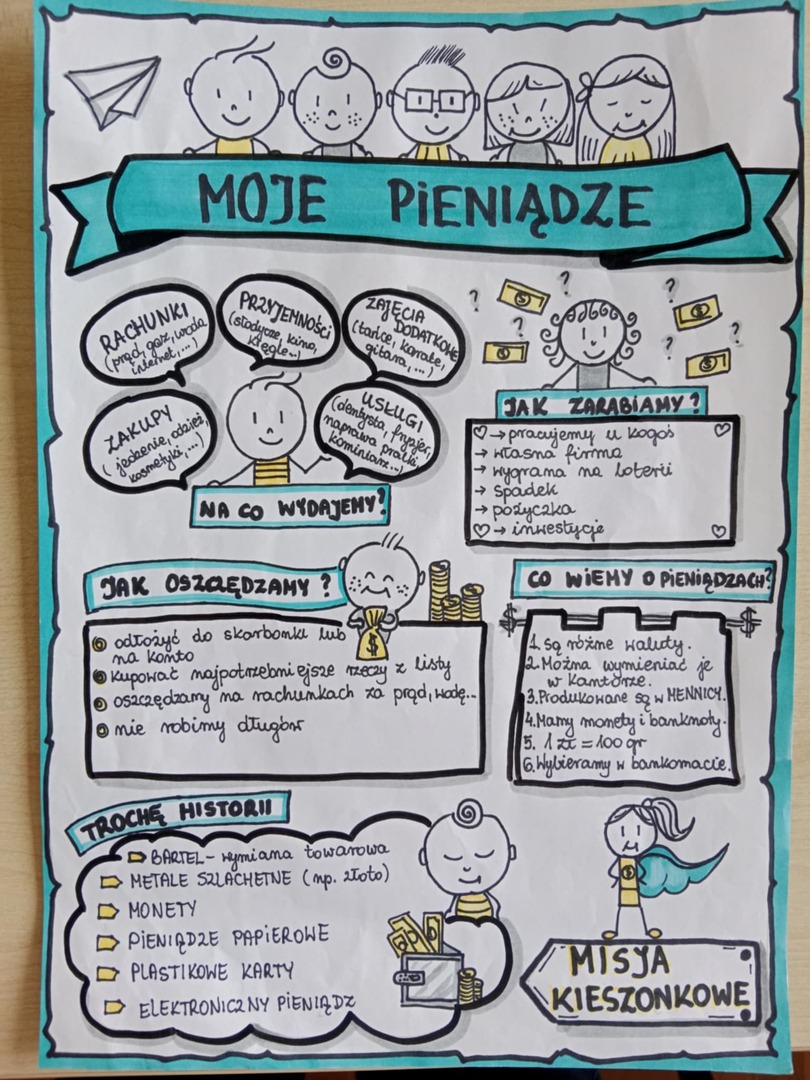 MOJE PIENIĄDZE
RACHUNKI
(prąd, gaz, woda
internet,...)
PRZYJEMNOŚCI
(słodycze, kino,
kręgle...)
ZAJĘCIA
DODATKOWE
(tańce, karate,
gitara,...)
ZAKUPY
(jedzenie, odzież,
kosmetyki,...)
USŁUGI
(dentysta, fryzjer,
naprawa pralki,
kominiarz...)
NA CO WYDAJEMY?
? ? ? ? ? ?
$ $ $ $
JAK ZARABIAMY?
→ pracujemy u kogoś
→ własna firma
→ wygrana na loterii
→ spadek
→ pożyczka
→ inwestycje
JAK OSZCZĘDZAMY ?
$
odłożyć do skarbonki lub
na konto
kupować najpotrzebniejsze rzeczy z listy
oszczędzamy na rachunkach za prąd, wodę...
nie robimy długów
CO WIEMY O PIENIĄDZACH?
$ $
1. Są różne waluty.
2. Można wymieniać je
w Kantorze.
3. Produkowane są w MENNICY.
4. Mamy monety i banknoty.
5. 1 zł = 100 gr
6. Wybieramy w bankomacie.
TROCHĘ HISTORII
BARTEL - wymiana towarowa
METALE SZLACHETNE (np. złoto)
MONETY
PIENIĄDZE PAPIEROWE
PLASTIKOWE KARTY
ELEKTRONICZNY PIENIĄDZ
$
MISJA
KIESZONKOWE